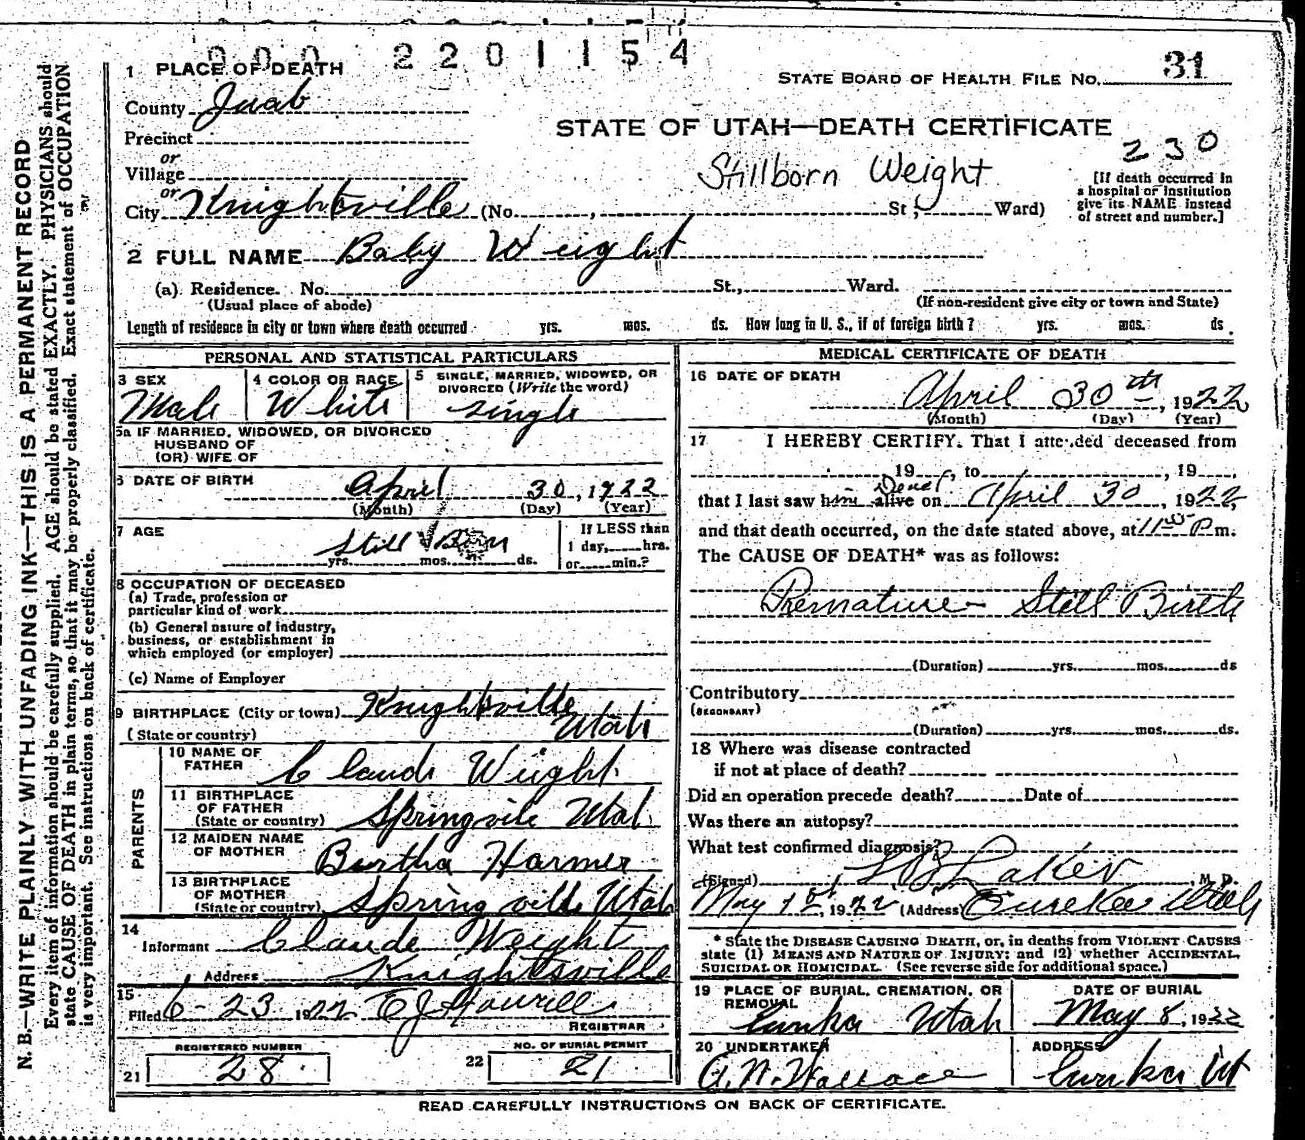 000 2201154
1 PLACE OF DEATH
STATE BOARD OF HEALTH FILE No. 31
County Juab
STATE OF UTAH—DEATH CERTIFICATE
Precinct
or
Village
Stillborn Weight
230
[If death occurred in
a hospital or institution
give its NAME instead
of street and number.]
or
City Knightsville (No. , St; Ward)
2 FULL NAME Baby Weight
(a) Residence. No. St., Ward.
(Usual place of abode) (If non-resident give city or town and State)
Length of residence in city or town where death occurred yrs. mos. ds. How long in U. S., if of foreign birth? yrs. mos. ds.
PERSONAL AND STATISTICAL PARTICULARS
3 SEX 4 COLOR OR RACE 5 SINGLE, MARRIED, WIDOWED, OR
DIVORCED (Write the word)
Male White single
5a IF MARRIED, WIDOWED, OR DIVORCED
HUSBAND OF
(OR) WIFE OF
6 DATE OF BIRTH April 30, 1922
(Month) (Day) (Year)
7 AGE Still Born
yrs. mos. ds.
If LESS than
1 day, hrs.
or min.?
8 OCCUPATION OF DECEASED
(a) Trade, profession or
particular kind of work
(b) General nature of industry,
business, or establishment in
which employed (or employer)
(c) Name of Employer
9 BIRTHPLACE (City or town) Knightsville
(State or country) Utah
PARENTS
10 NAME OF
FATHER Claude Weight
11 BIRTHPLACE
OF FATHER
(State or country) Springvile Utah
12 MAIDEN NAME
OF MOTHER Bertha Harmer
13 BIRTHPLACE
OF MOTHER
(State or country) Springville Utah
14
Informant Claude Weight
Address Knightsville
15
Filed 6-23 1922 E J Howell
REGISTRAR
REGISTERED NUMBER NO. OF BURIAL PERMIT
21 28 22 21
MEDICAL CERTIFICATE OF DEATH
16 DATE OF DEATH
April 30th, 1922
(Month) (Day) (Year)
17 I HEREBY CERTIFY. That I attended deceased from
19 , to , 19
Dead
that I last saw him alive on April 30, 1922,
and that death occurred, on the date stated above, at 11 P m.
The CAUSE OF DEATH* was as follows:
Premature Still Birth
(Duration) yrs. mos. ds
Contributory
(SECONDARY)
(Duration) yrs. mos. ds.
18 Where was disease contracted
if not at place of death?
Did an operation precede death? Date of
Was there an autopsy?
What test confirmed diagnosis?
(Signed) Laker M. D.
May 1st, 1922 (Address) Eureka Utah
* State the DISEASE CAUSING DEATH, or, in deaths from VIOLENT CAUSES
state (1) MEANS AND NATURE OF INJURY; and (2) whether ACCIDENTAL,
SUICIDAL or HOMICIDAL. (See reverse side for additional space.)
19 PLACE OF BURIAL, CREMATION, OR
REMOVAL DATE OF BURIAL
Eureka Utah May 8, 1922
20 UNDERTAKER ADDRESS
A. N. Wallace Eureka Ut
READ CAREFULLY INSTRUCTIONS ON BACK OF CERTIFICATE.
N. B.—WRITE PLAINLY WITH UNFADING INK—THIS IS A PERMANENT RECORD
Every item of information should be carefully supplied. AGE should be stated EXACTLY. PHYSICIANS should
state CAUSE OF DEATH in plain terms, so that it may be properly classified. Exact statement of OCCUPATION
is very important. See instructions on back of certificate.